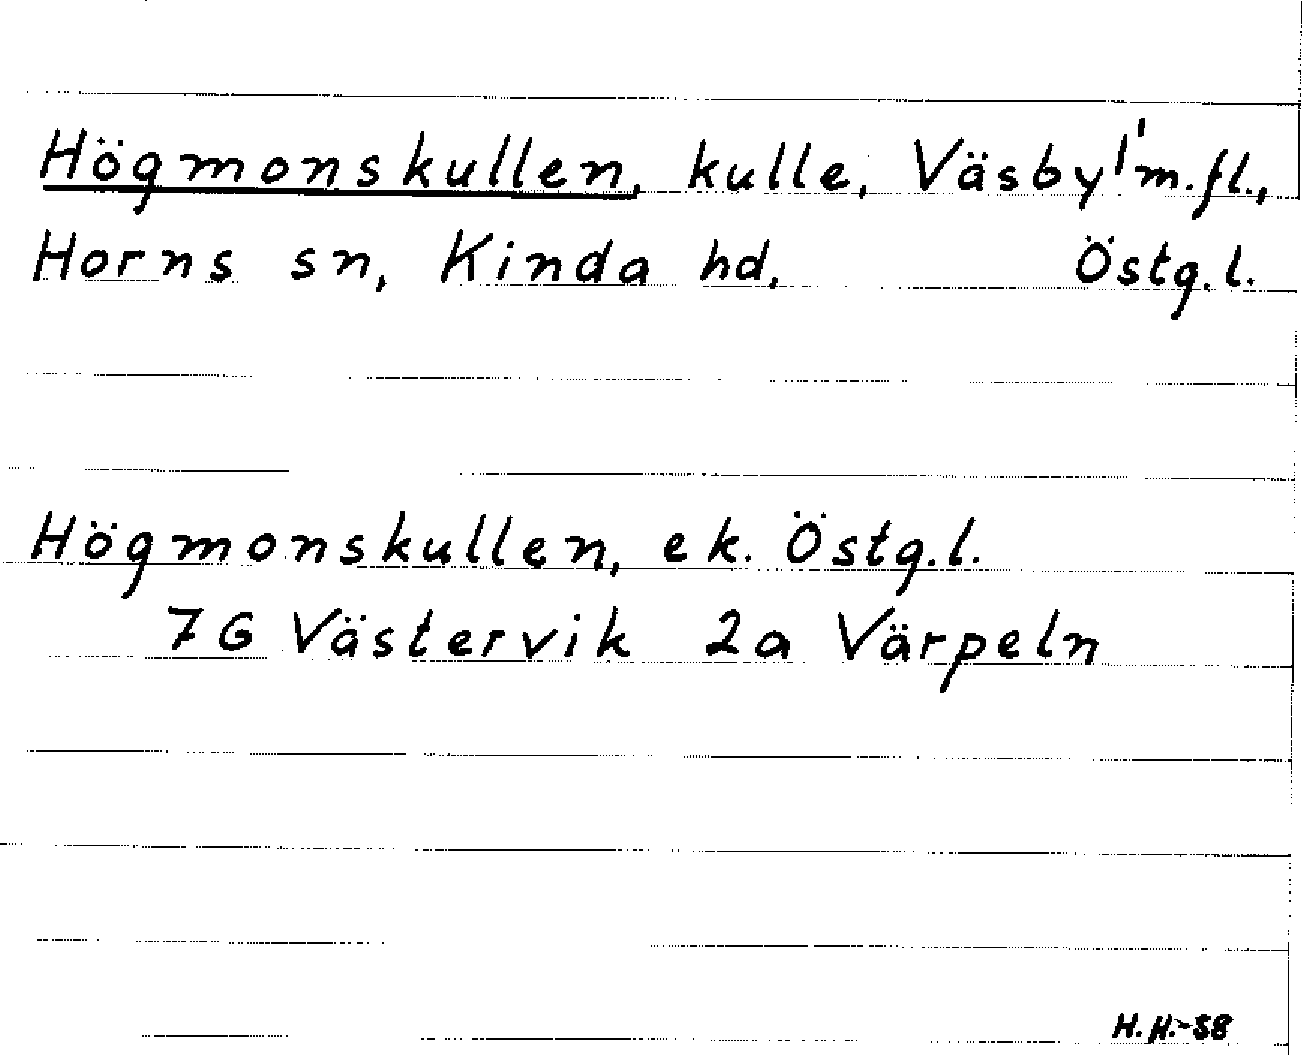 Högmonskullen, kulle, Väsby 1¹ m.fl.,
Horns sn, Kinda hd, Östg.l.
Högmonskullen, ek. Östg.l.
7G Västervik 2a Värpeln
H.H.-58